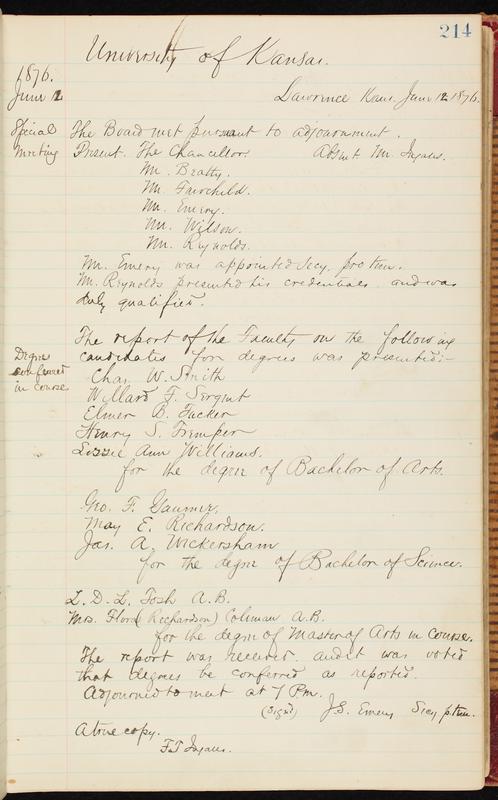 214
University of Kansas.
1876.
June 12
Lawrence Kans. June 12 1876.
Special
Meeting
The Board met pursuant to adjournment.
Present. The Chancellor. Absent Mr. Ingalls.
Mr. Beatty.
Mr. Fairchild.
Mr. Emery.
Mr. Wilson.
Mr. Reynolds.
Mr. Emery was appointed Secy. pro tem.
Mr. Reynolds presented his credentials and was
duly qualified.
The report of the Faculty on the following
Degree
conferred
in course
candidates for degrees was presented:-
Chas. W. Smith
Willard F. Sergent
Elmer B. Tucker
Henry S. Tremper
Lizzie Ann Williams.
for the degree of Bachelor of Arts.
Geo. F. Gaumer.
May E. Richardson.
Jas. A. Wickersham
for the degree of Bachelor of Science.
L. D. L. Tosh A.B.
Mrs. Flora (Richardson) Coleman A.B.
for the degree of Master of Arts in course.
The report was received and it was voted
that degrees be conferred as reported.
Adjourned to meet at 7 P.m.
(Signed) J.S. Emery Secy p. tem.
A true copy.